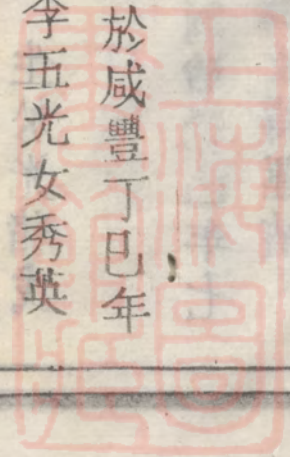 於咸豐丁巳年
李五光女秀英